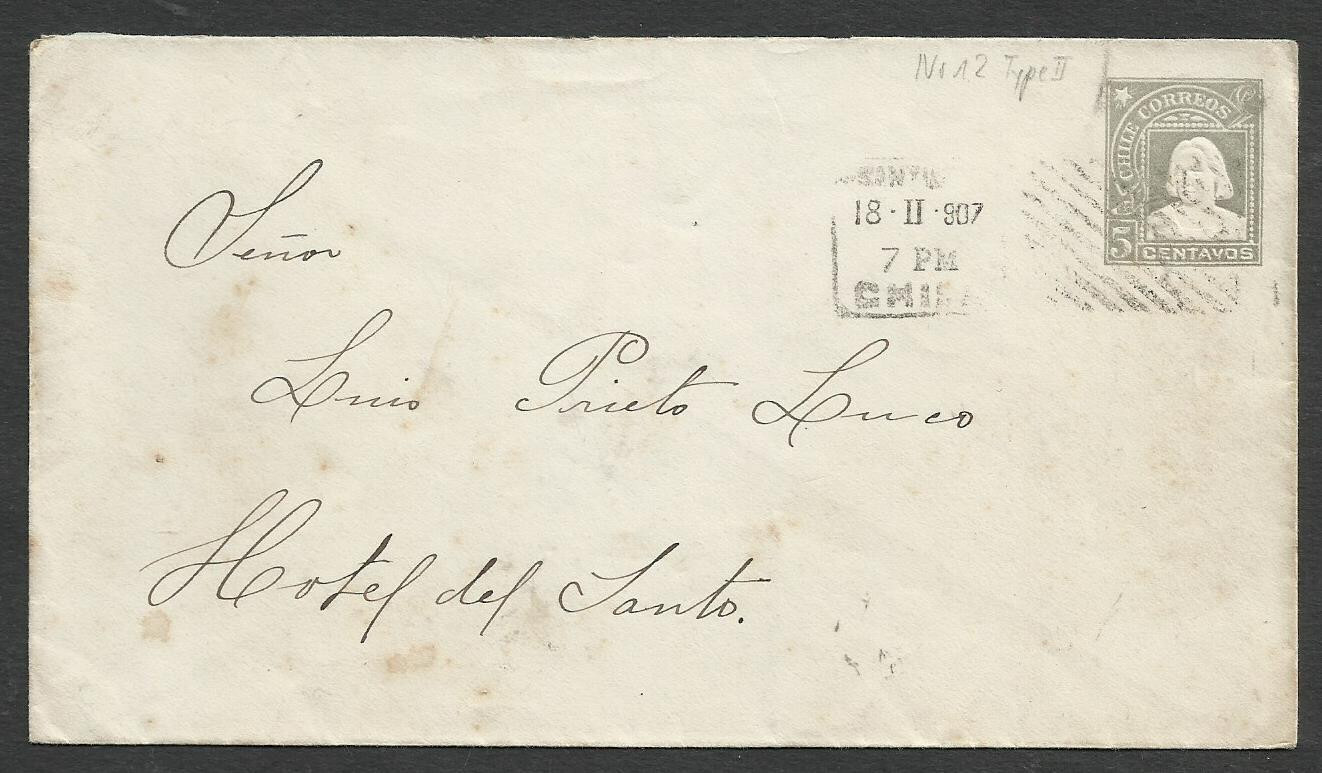 No 12 Type II
CHILE CORREOS
5 CENTAVOS
18·II·907
7 PM
CHILE
Señor
Luis Prieto Luco
Hotel del Santo.